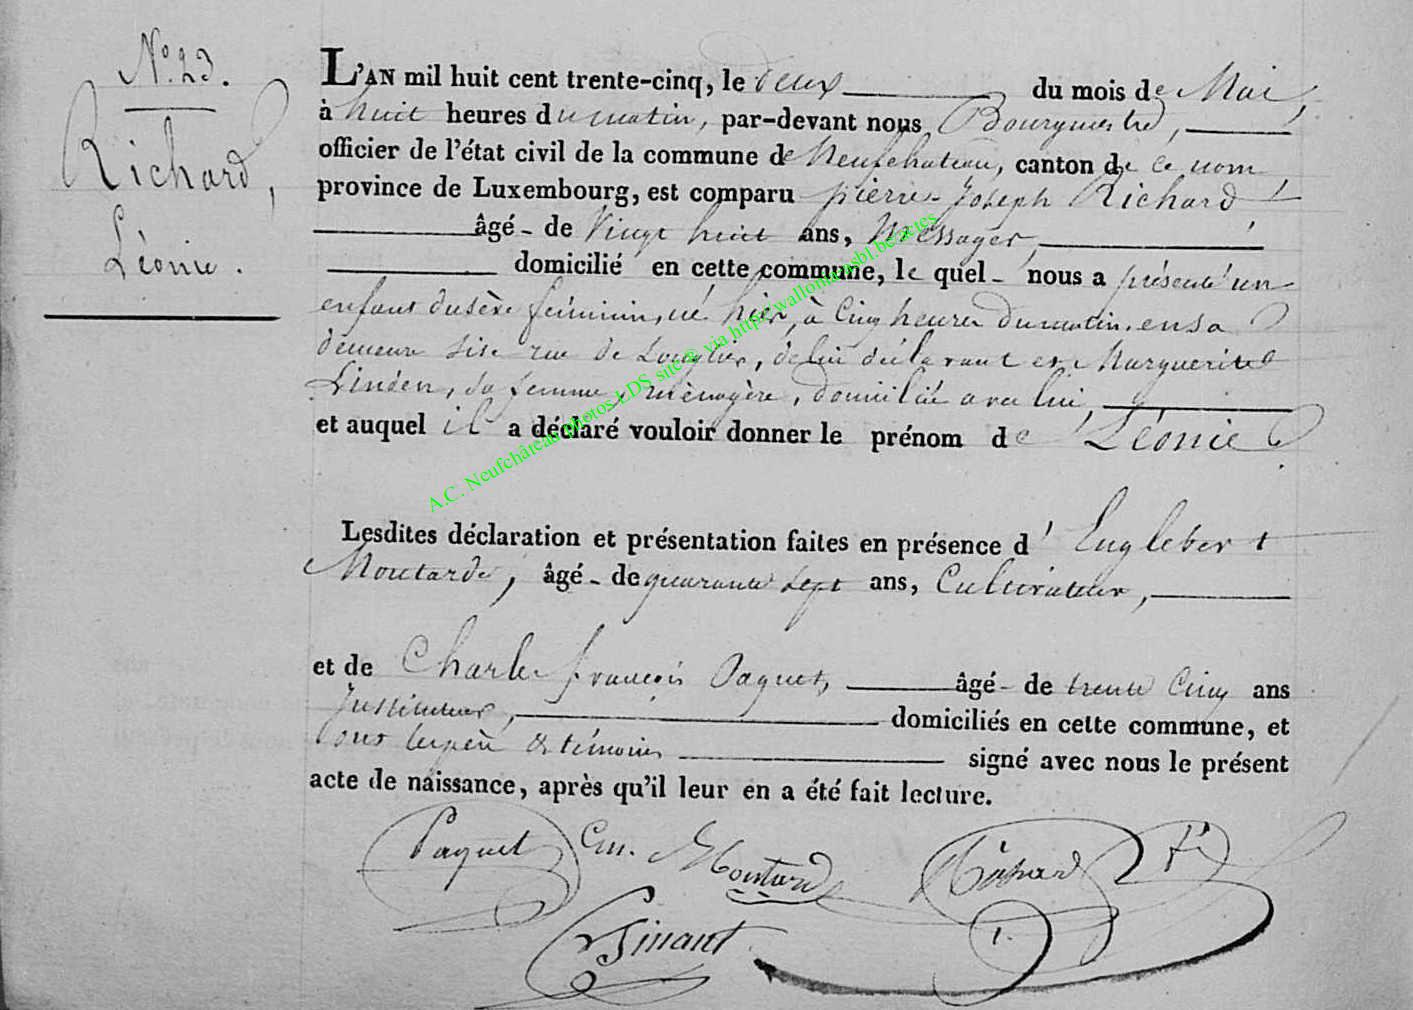 N.° 23.
Richard,
Léonie.
L'AN mil huit cent trente-cinq, le deux du mois de Mai,
à huit heures du matin, par-devant nous Bourgmestre,
officier de l'état civil de la commune de Neufchateau, canton de ce nom
province de Luxembourg, est comparu pierre Joseph Richard
âgé - de Vingt huit ans, Messager,
domicilié en cette commune, le quel - nous a présenté un
enfant du sèxe féminin, né hier, à Cinq heures du matin, en sa
demeure sise rue de Longlier, de lui déclarant et de Marguerite
Linden, sa femme, ménagère, domiciliée avec lui,
et auquel il a déclaré vouloir donner le prénom de Léonie
Lesdites déclaration et présentation faites en présence d' Englebert
Moutarde, âgé - de quarante sept ans, Cultivateur,
et de Charles françois Paquet, âgé - de trente Cinq ans
Instituteur, domiciliés en cette commune, et
ont le père & témoins signé avec nous le présent
acte de naissance, après qu'il leur en a été fait lecture.
Paquet En. Moutard Richard
A.C. Neufchâteau photos LDS sité® via http://wallonia.asbl.be/actes